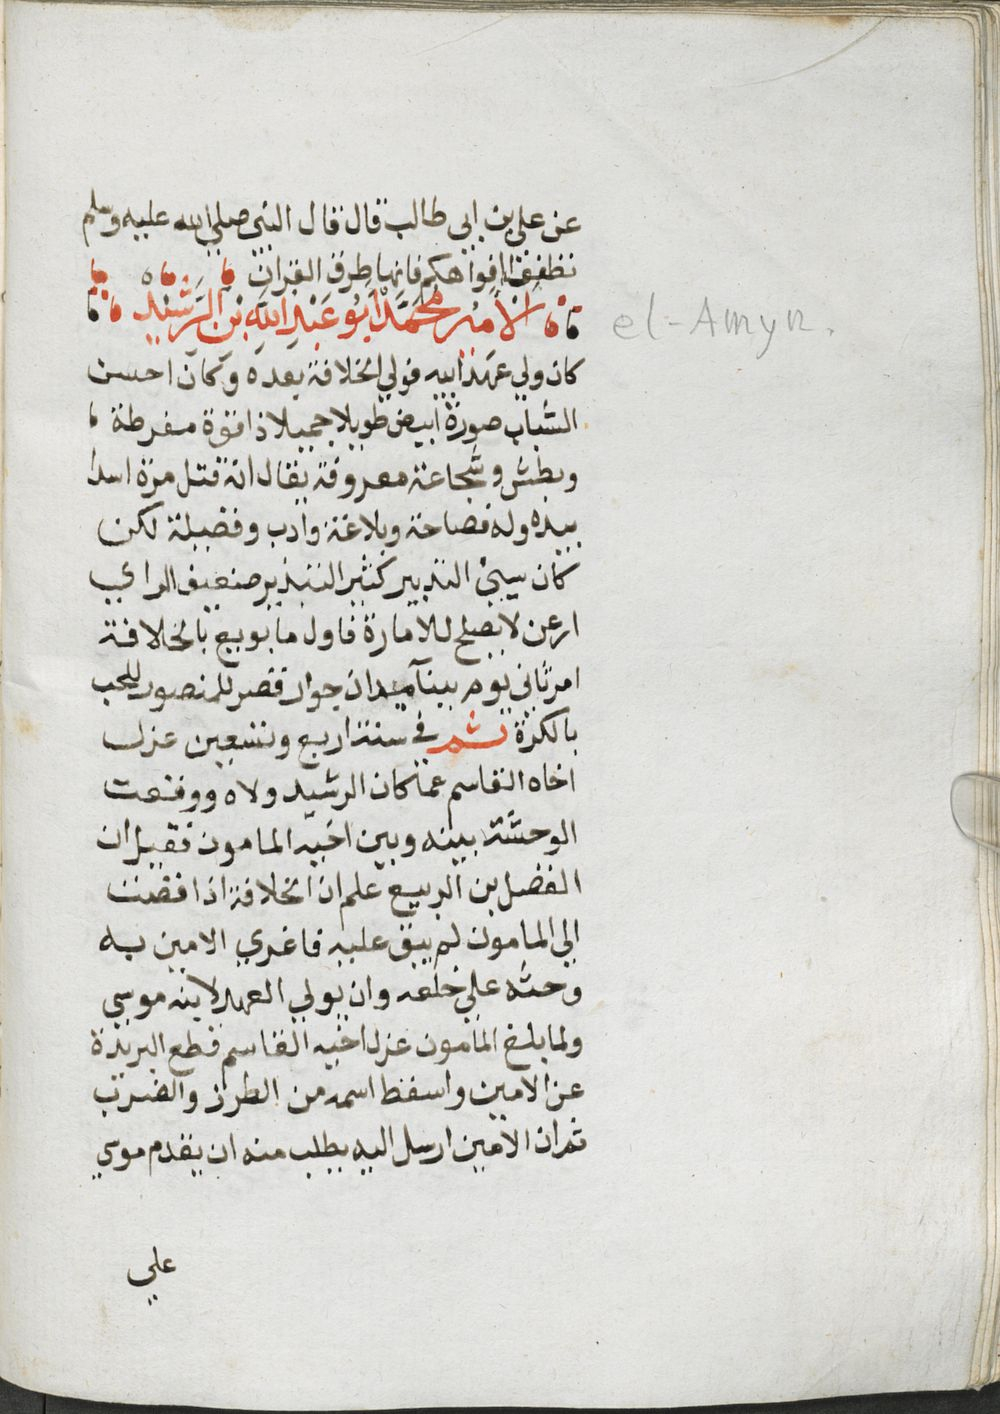 عن علي بن ابي طالب قال قال النبي صلي الله عليه وسلم
نظفوا افواهكم فانها طرق القران
الامين محمد ابو عبد الله بن الرشيد
el-Amyn.
كان ولي عهد ابيه فولي الخلافة بعده وكان احسن
الشباب صورة ابيض طويلا جميلا ذا قوة مفرطة
وبطش وشجاعة معروفة يقال انه قتل مرة اسدا
بيده وله فصاحة وبلاغة وادب وفضيلة لكن
كان سيئ التدبير كثير التبذير ضعيف الراي
ارعن لا يصلح للامارة فاول ما بويع بالخلافة
امر ثاني يوم ببنآ ميدان جوار قصر المنصور للعب
بالكرة ثم في سنة اربع وتسعين عزل
اخاه القاسم عما كان الرشيد ولاه ووقعت
الوحشة بينه وبين اخيه المامون فقيل ان
الفضل بن الربيع علم ان الخلافة اذا افضت
الي المامون لم يبق عليه فاغري الامين به
وحثه علي خلعه وان يولي العهد لابنه موسي
ولما بلغ المامون عزل اخيه القاسم قطع البريدة
عن الامين واسقط اسمه من الطرز والضرب
ثم ان الامين ارسل اليه يطلب منه ان يقدم موسي
علي